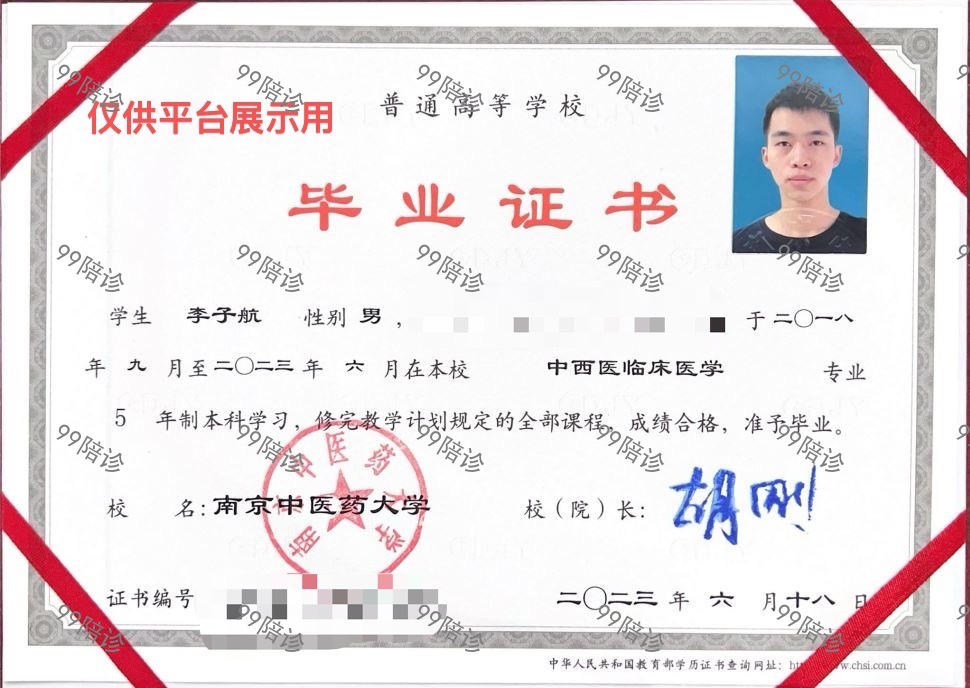 仅供平台展示用
普通高等学校
毕业证书
学生 李子航 性别 男 , 于二〇一八
年 九 月至二〇二三年 六 月在本校 中西医临床医学 专业
5 年制本科学习，修完教学计划规定的全部课程，成绩合格，准予毕业。
校 名：南京中医药大学 校（院）长：胡刚
南京中医药大学
证书编号 二〇二三年 六 月十八日
中华人民共和国教育部学历证书查询网址：http://www.chsi.com.cn
99陪诊 99陪诊 99陪诊 99陪诊 99陪诊
99陪诊 99陪诊 99陪诊 99陪诊 99陪诊
99陪诊 99陪诊 99陪诊 99陪诊 99陪诊
99陪诊 99陪诊 99陪诊 99陪诊 99陪诊